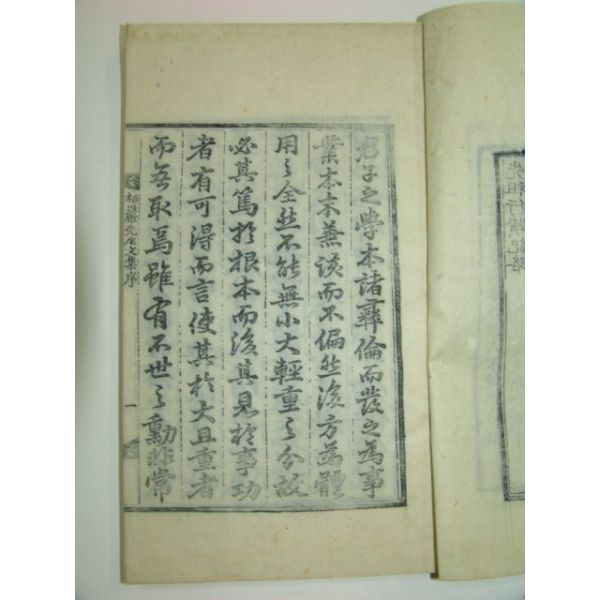 君子之學本諸彛倫而發之為事
業本末兼該而不偏然後方為體
用之全然不能無小大輕重之分故
必其篤於根本而後其見於事功
者有可得而言使其於大且重者
而無取焉雖有不世之勳非常
先生文集序
一
先祖行蹟記略